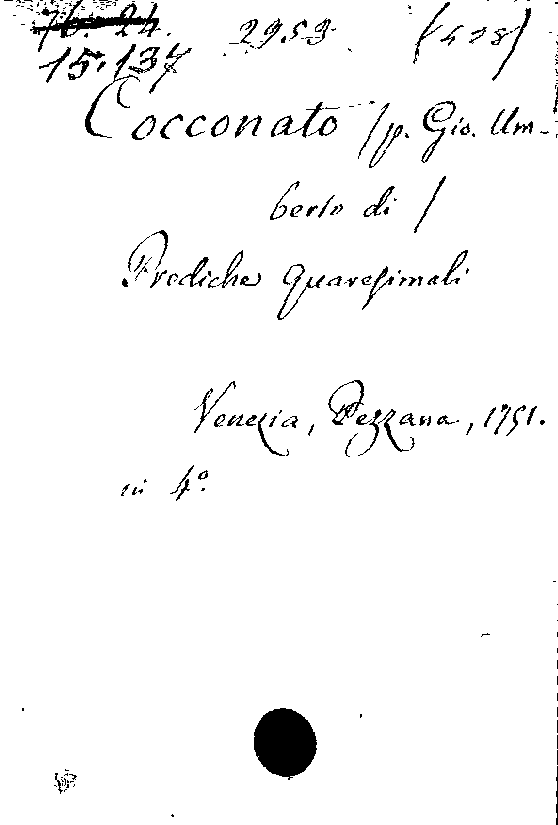 76. 24. 2953 (508)
15.137
Cocconato /p. Gio. Um-
berto di /
Prediche quaresimali
Venezia, Pezzana, 1751.
in 4º.